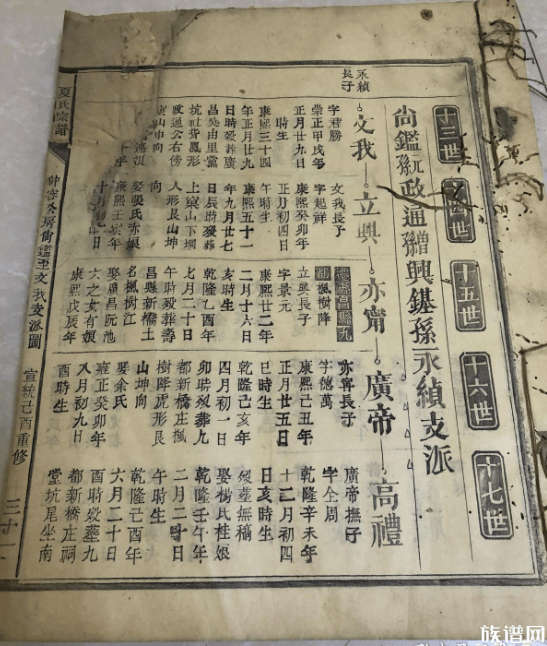 十三世
世
十五世
十六世
十七世
尚鑑孫玩政通孫贈興鍖孫永禎支派
文我
立興
亦甯
廣帝
高禮
永禎
長子
字君勝
崇正甲戌年
正月廿九日
時生
康熙三十四
年正月廿九
日時殁葬廣
昌吳由里黨
坑社背鳳形
政通公右傍
山申向
文我長子
字起祥
康熙癸卯年
正月初四日
時生
康熙五十一
年九月廿七
日辰時殁葬
上窠山下壩
人形艮山坤
向
娶張氏赤娘
康熙壬寅年
十月初八日
立興長子
字景元
康熙廿二年
二月十六日
亥時生
乾隆乙酉年
七月二十日
午時殁葬壽
昌縣新橋土
名楓樹江
娶羅昌阮池
大之女有娘
康熙戊辰年
楓樹降
亦甯長子
字德萬
康熙己丑年
正月廿五日
巳時生
乾隆己亥年
四月初一日
卯時殁葬九
都新橋庄楓
樹降虎形艮
山坤向
娶余氏
雍正癸卯年
八月初九日
酉時生
廣帝撫子
字全周
乾隆辛未年
十二月初四
日亥時生
殁葬無稱
娶楊氏桂娘
乾隆壬午年
二月二十日
午時生
乾隆己酉年
六月二十日
酉時殁葬九
都新橋庄祠
堂坑尾坐南
夏氏宗譜
房尚鑑至文我支派圖
宣統己酉重修
三十一
族谱网